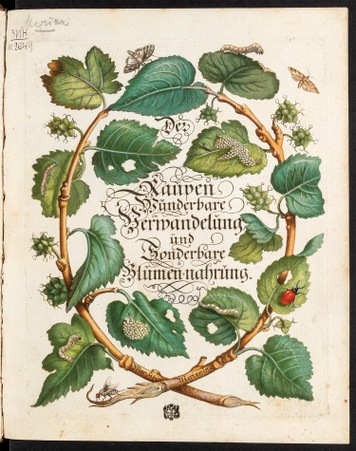 Merian
Der
Raupen
Wunderbare
Verwandelung,
und
Sonderbare
Blumen-nahrung.